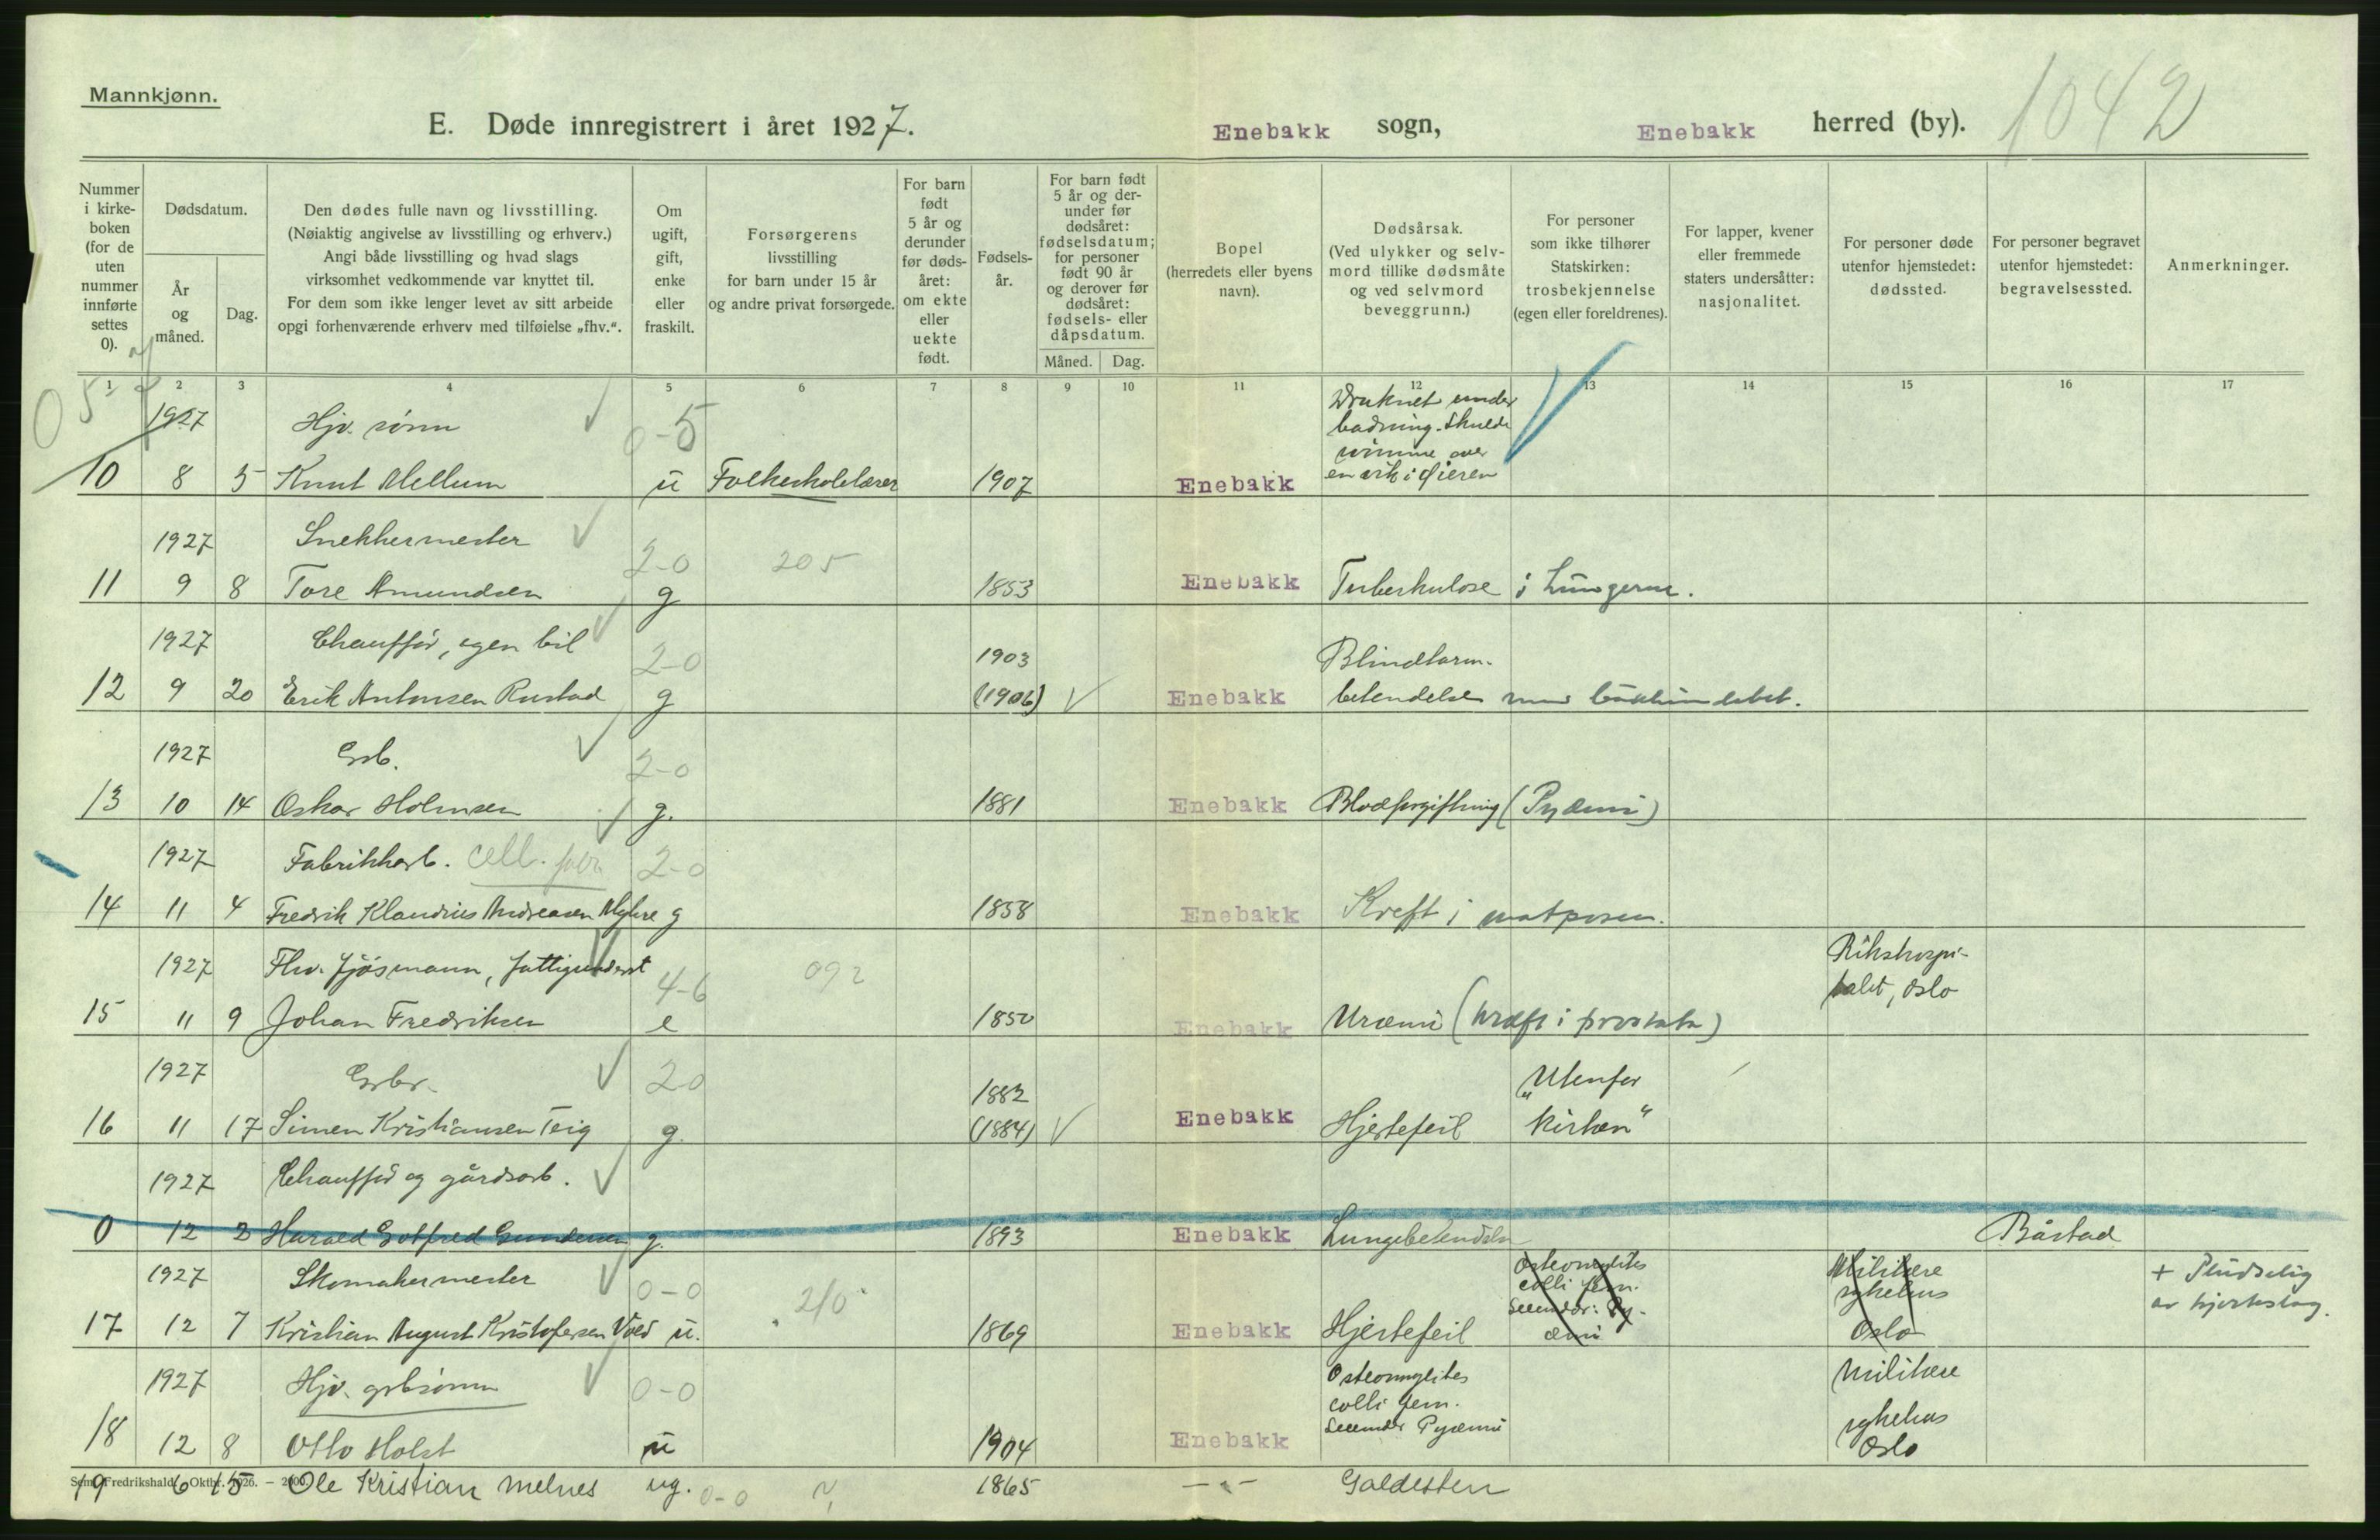 Mannkjønn.
E. Døde innregistrert i året 1927.
Enebakk sogn, Enebakk herred (by).
1042
Nummer i kirke-boken (for de uten nummer innførte settes 0).
Dødsdatum.
År og måned.
Dag.
Den dødes fulle navn og livsstilling.
(Nøiaktig angivelse av livsstilling og erhverv.)
Angi både livsstilling og hvad slags
virksomhet vedkommende var knyttet til.
For dem som ikke lenger levet av sitt arbeide
opgi forhenværende erhverv med tilføielse „fhv.“.
Om ugift, gift, enke eller fraskilt.
Forsørgerens
livsstilling
for barn under 15 år
og andre privat forsørgede.
For barn født 5 år og derunder før døds-året: om ekte eller uekte født.
Fødsels-år.
For barn født 5 år og der-under før dødsåret: fødselsdatum; for personer født 90 år og derover før dødsåret: fødsels- eller dåpsdatum.
Måned. Dag.
Bopel
(herredets eller byens
navn).
Dødsårsak.
(Ved ulykker og selv-
mord tillike dødsmåte
og ved selvmord
beveggrunn.)
For personer
som ikke tilhører
Statskirken:
trosbekjennelse
(egen eller foreldrenes).
For lapper, kvener
eller fremmede
staters undersåtter:
nasjonalitet.
For personer døde
utenfor hjemstedet:
dødssted.
For personer begravet
utenfor hjemstedet:
begravelsessted.
Anmerkninger.
1 2 3 4 5 6 7 8 9 10 11 12 13 14 15 16 17
1927 Hjv. sønn 0-5 Druknet under
badning. Skulde
svimme over
10 8 5 Knut Mellum u Folkeskolelærer 1907 Enebakk en vik i Øieren
1927 Snekkermester 2-0 205
11 9 8 Tore Amundsen g 1853 Enebakk Tuberkulose i Lungerne.
1927 Chauffør, egen bil 2-0 1903 Blindtarm-
12 9 20 Erik Antonsen Rustad g (1906) Enebakk betendelse
1927 Grb. 2-0
13 10 14 Oskar Holmsen g. 1881 Enebakk Blodforgiftning (Pyæmi)
1927 Fabrikkarb. cell. fabr. 2-0
14 11 4 Fredrik Klaudius Andreasen g 1858 Enebakk Kreft i matposen.
1927 Fhv. fjøsmann, fattigunderst 4-6 092 Rikshospi-
talet, Oslo
15 11 9 Johan Fredriksen e 1850 Enebakk Uræmi (kræft i prostata)
1927 Grbr. 20 1882 „Utenfor
16 11 17 Simen Kristiansen Teig g. (1884) Enebakk Hjertefeil kirken“
1927 Chauffør og gårdsarb.
0 12 2 Harald Gotfred Gundersen g. 1893 Enebakk Lungebetendelse Båstad
1927 Skomakermester 0-0 210 Osteomylites
colli fem.
Secundær: Py-
æmi Militære
sykehus
Oslo + Pludselig
av hjerteslag.
17 12 7 Kristian August Kristofersen Vold u. 1869 Enebakk Hjertefeil
1927 Hjv. grbsønn 0-0 Osteomylites
colli fem.
Secundær Pyæmi Militære
sykehus
Oslo
18 12 8 Otto Holst u 1904 Enebakk
19 6 15 Ole Kristian Melnes ug. 0-0 1865 -"- Galdesten